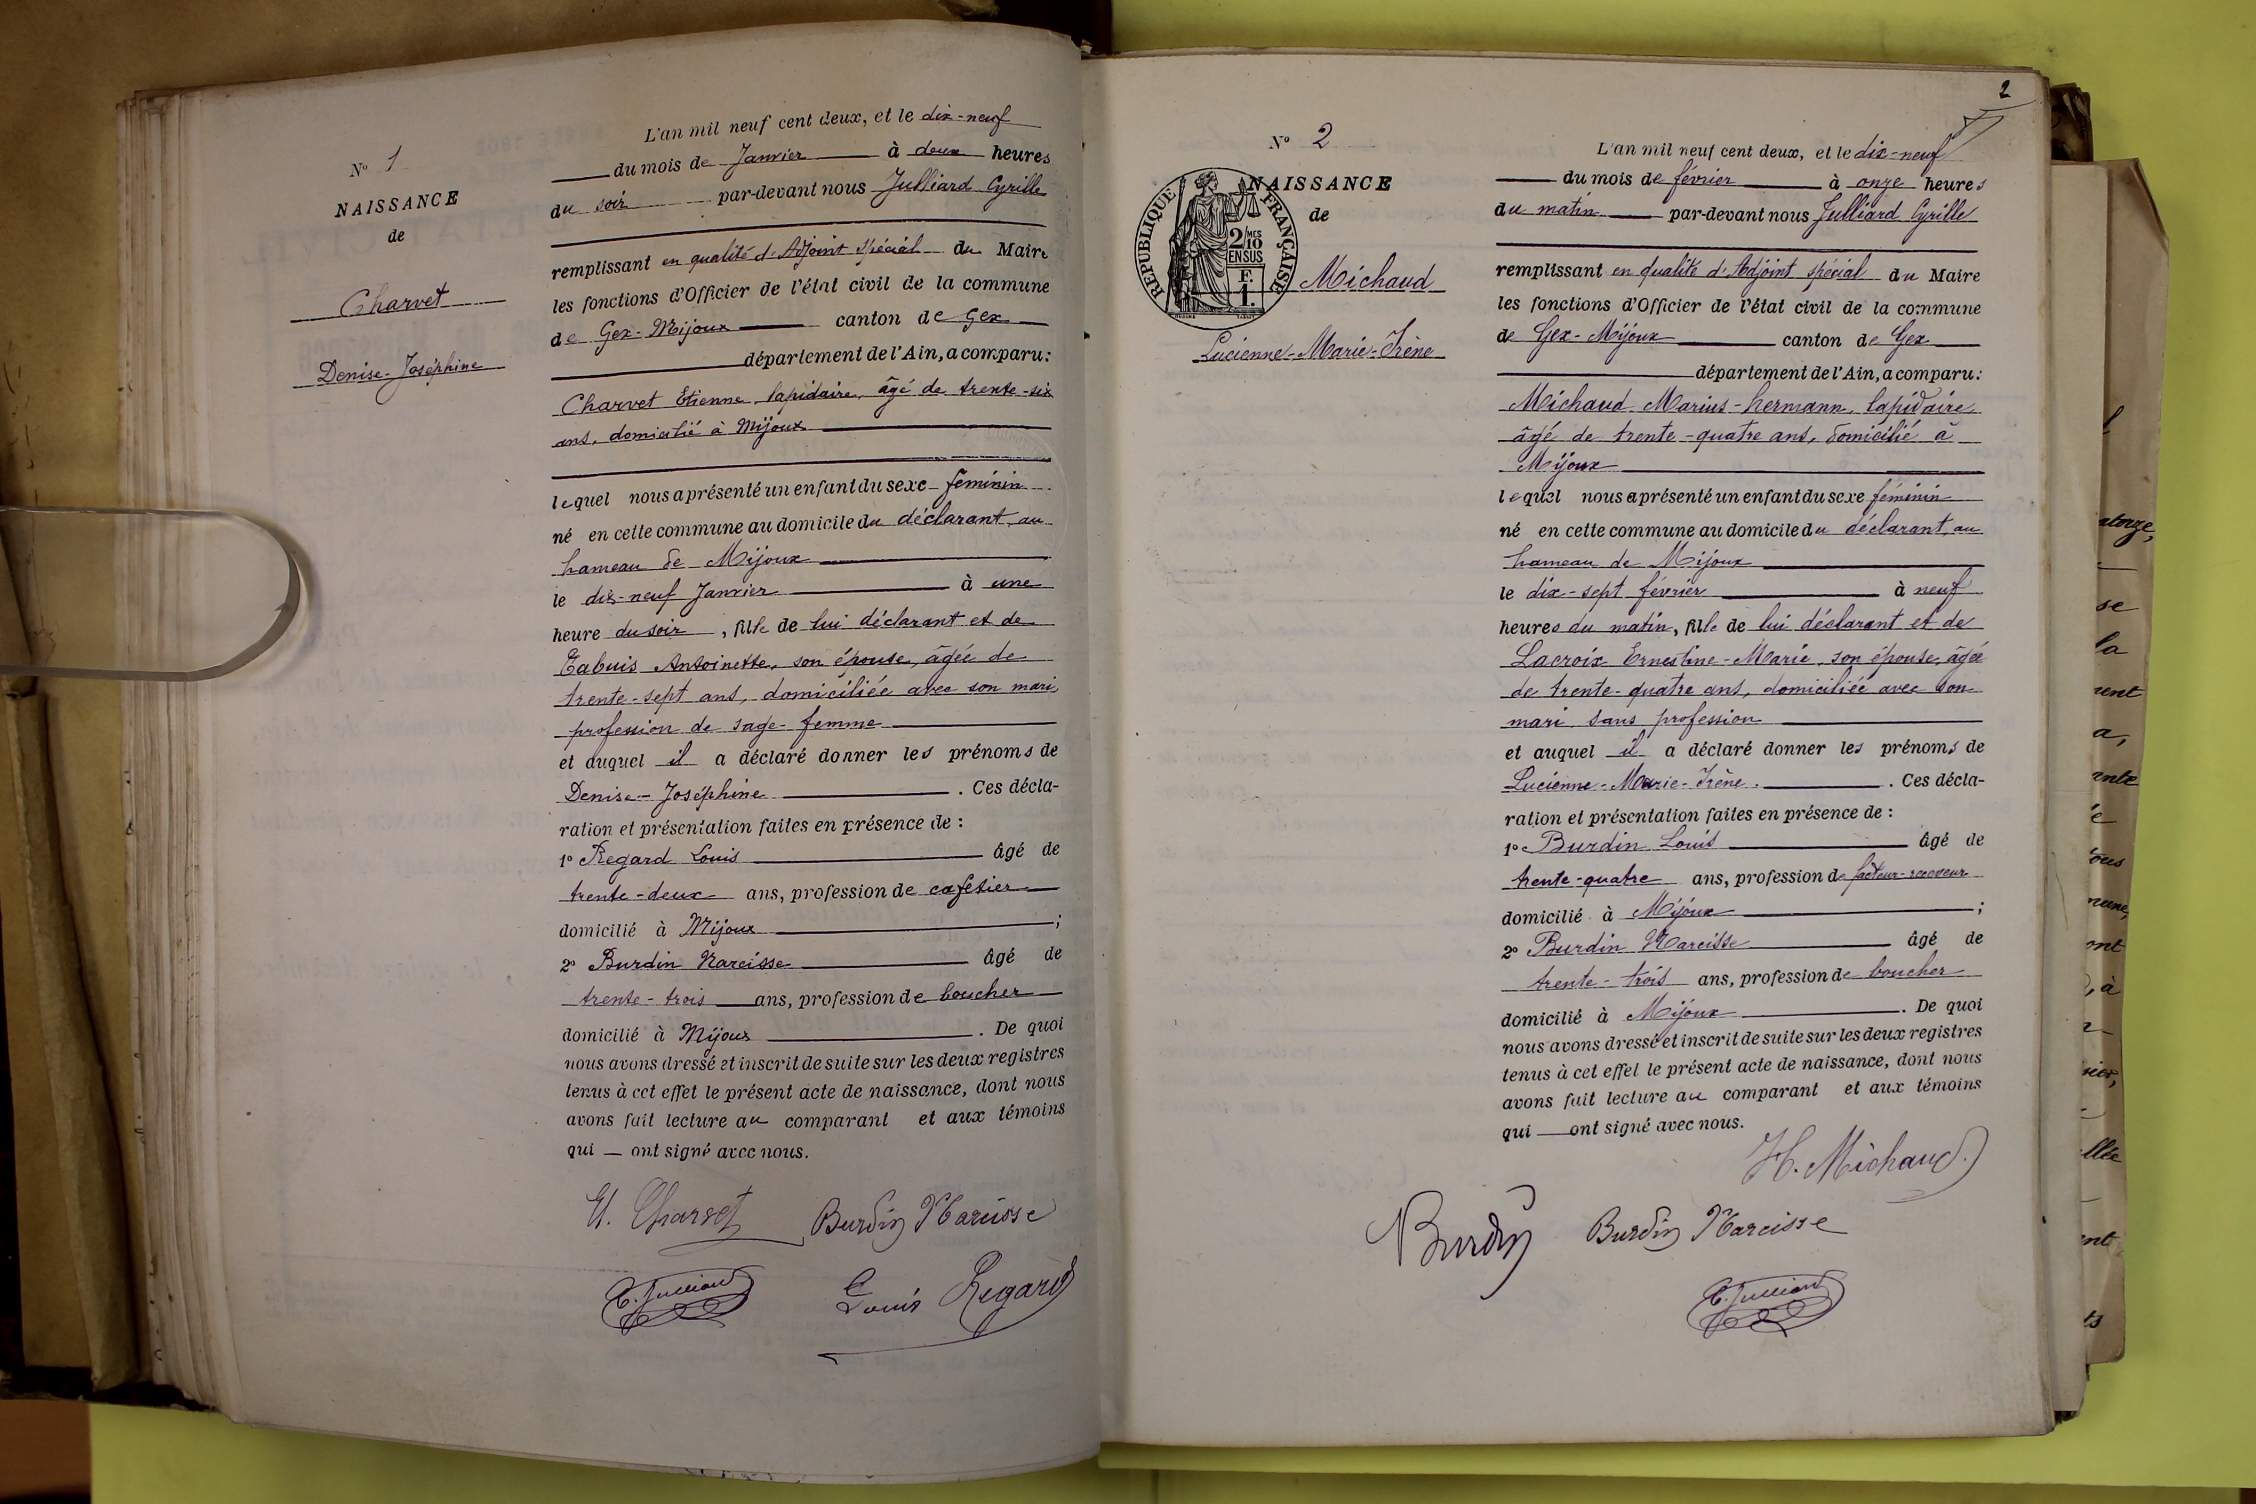 N° 1
NAISSANCE
de
Charvet
Denise-Joséphine
L'an mil neuf cent deux, et le dix-neuf
du mois de Janvier à deux heures
du soir par-devant nous Julliard Cyrille
remplissant en qualité d'Adjoint spécial du Maire
les fonctions d'Officier de l'état civil de la commune
de Gex-Mijoux canton de Gex
département de l'Ain, a comparu:
Charvet Etienne, lapidaire, âgé de trente-six
ans, domicilié à Mijoux
lequel nous a présenté un enfant du sexe féminin
né en cette commune au domicile du déclarant, au
hameau de Mijoux
le dix-neuf Janvier à une
heure du soir, fille de lui déclarant et de
Tabuis Antoinette, son épouse, âgée de
trente-sept ans, domiciliée avec son mari,
profession de sage-femme
et auquel il a déclaré donner les prénoms de
Denise-Joséphine. Ces décla-
ration et présentation faites en présence de :
1° Regard Louis âgé de
trente-deux ans, profession de cafetier
domicilié à Mijoux ;
2° Burdin Narcisse âgé de
trente-trois ans, profession de boucher
domicilié à Mijoux. De quoi
nous avons dressé et inscrit de suite sur les deux registres
tenus à cet effet le présent acte de naissance, dont nous
avons fait lecture au comparant et aux témoins
qui — ont signé avec nous.
E. Charvet Burdin Narcisse
C. Julliard Louis Regard
2
N° 2
NAISSANCE
de
RÉPUBLIQUE FRANÇAISE
2/10 MES
EN SUS
F.
1.
Michaud
Lucienne-Marie-Irène
L'an mil neuf cent deux, et le dix-neuf
du mois de février à onze heures
du matin par-devant nous Julliard Cyrille
remplissant en qualité d'Adjoint spécial du Maire
les fonctions d'Officier de l'état civil de la commune
de Gex-Mijoux canton de Gex
département de l'Ain, a comparu:
Michaud Marius-hermann, lapidaire
âgé de trente-quatre ans, domicilié à
Mijoux
lequel nous a présenté un enfant du sexe féminin
né en cette commune au domicile du déclarant, au
hameau de Mijoux
le dix-sept février à neuf
heures du matin, fille de lui déclarant et de
Lacroix Ernestine-Marie, son épouse, âgée
de trente-quatre ans, domiciliée avec son
mari sans profession
et auquel il a déclaré donner les prénoms de
Lucienne-Marie-Irène. Ces décla-
ration et présentation faites en présence de :
1° Burdin Louis âgé de
trente-quatre ans, profession de facteur-receveur
domicilié à Mijoux ;
2° Burdin Narcisse âgé de
trente-trois ans, profession de boucher
domicilié à Mijoux. De quoi
nous avons dressé et inscrit de suite sur les deux registres
tenus à cet effet le présent acte de naissance, dont nous
avons fait lecture au comparant et aux témoins
qui — ont signé avec nous.
H. Michaud
Burdin Burdin Narcisse
C. Julliard